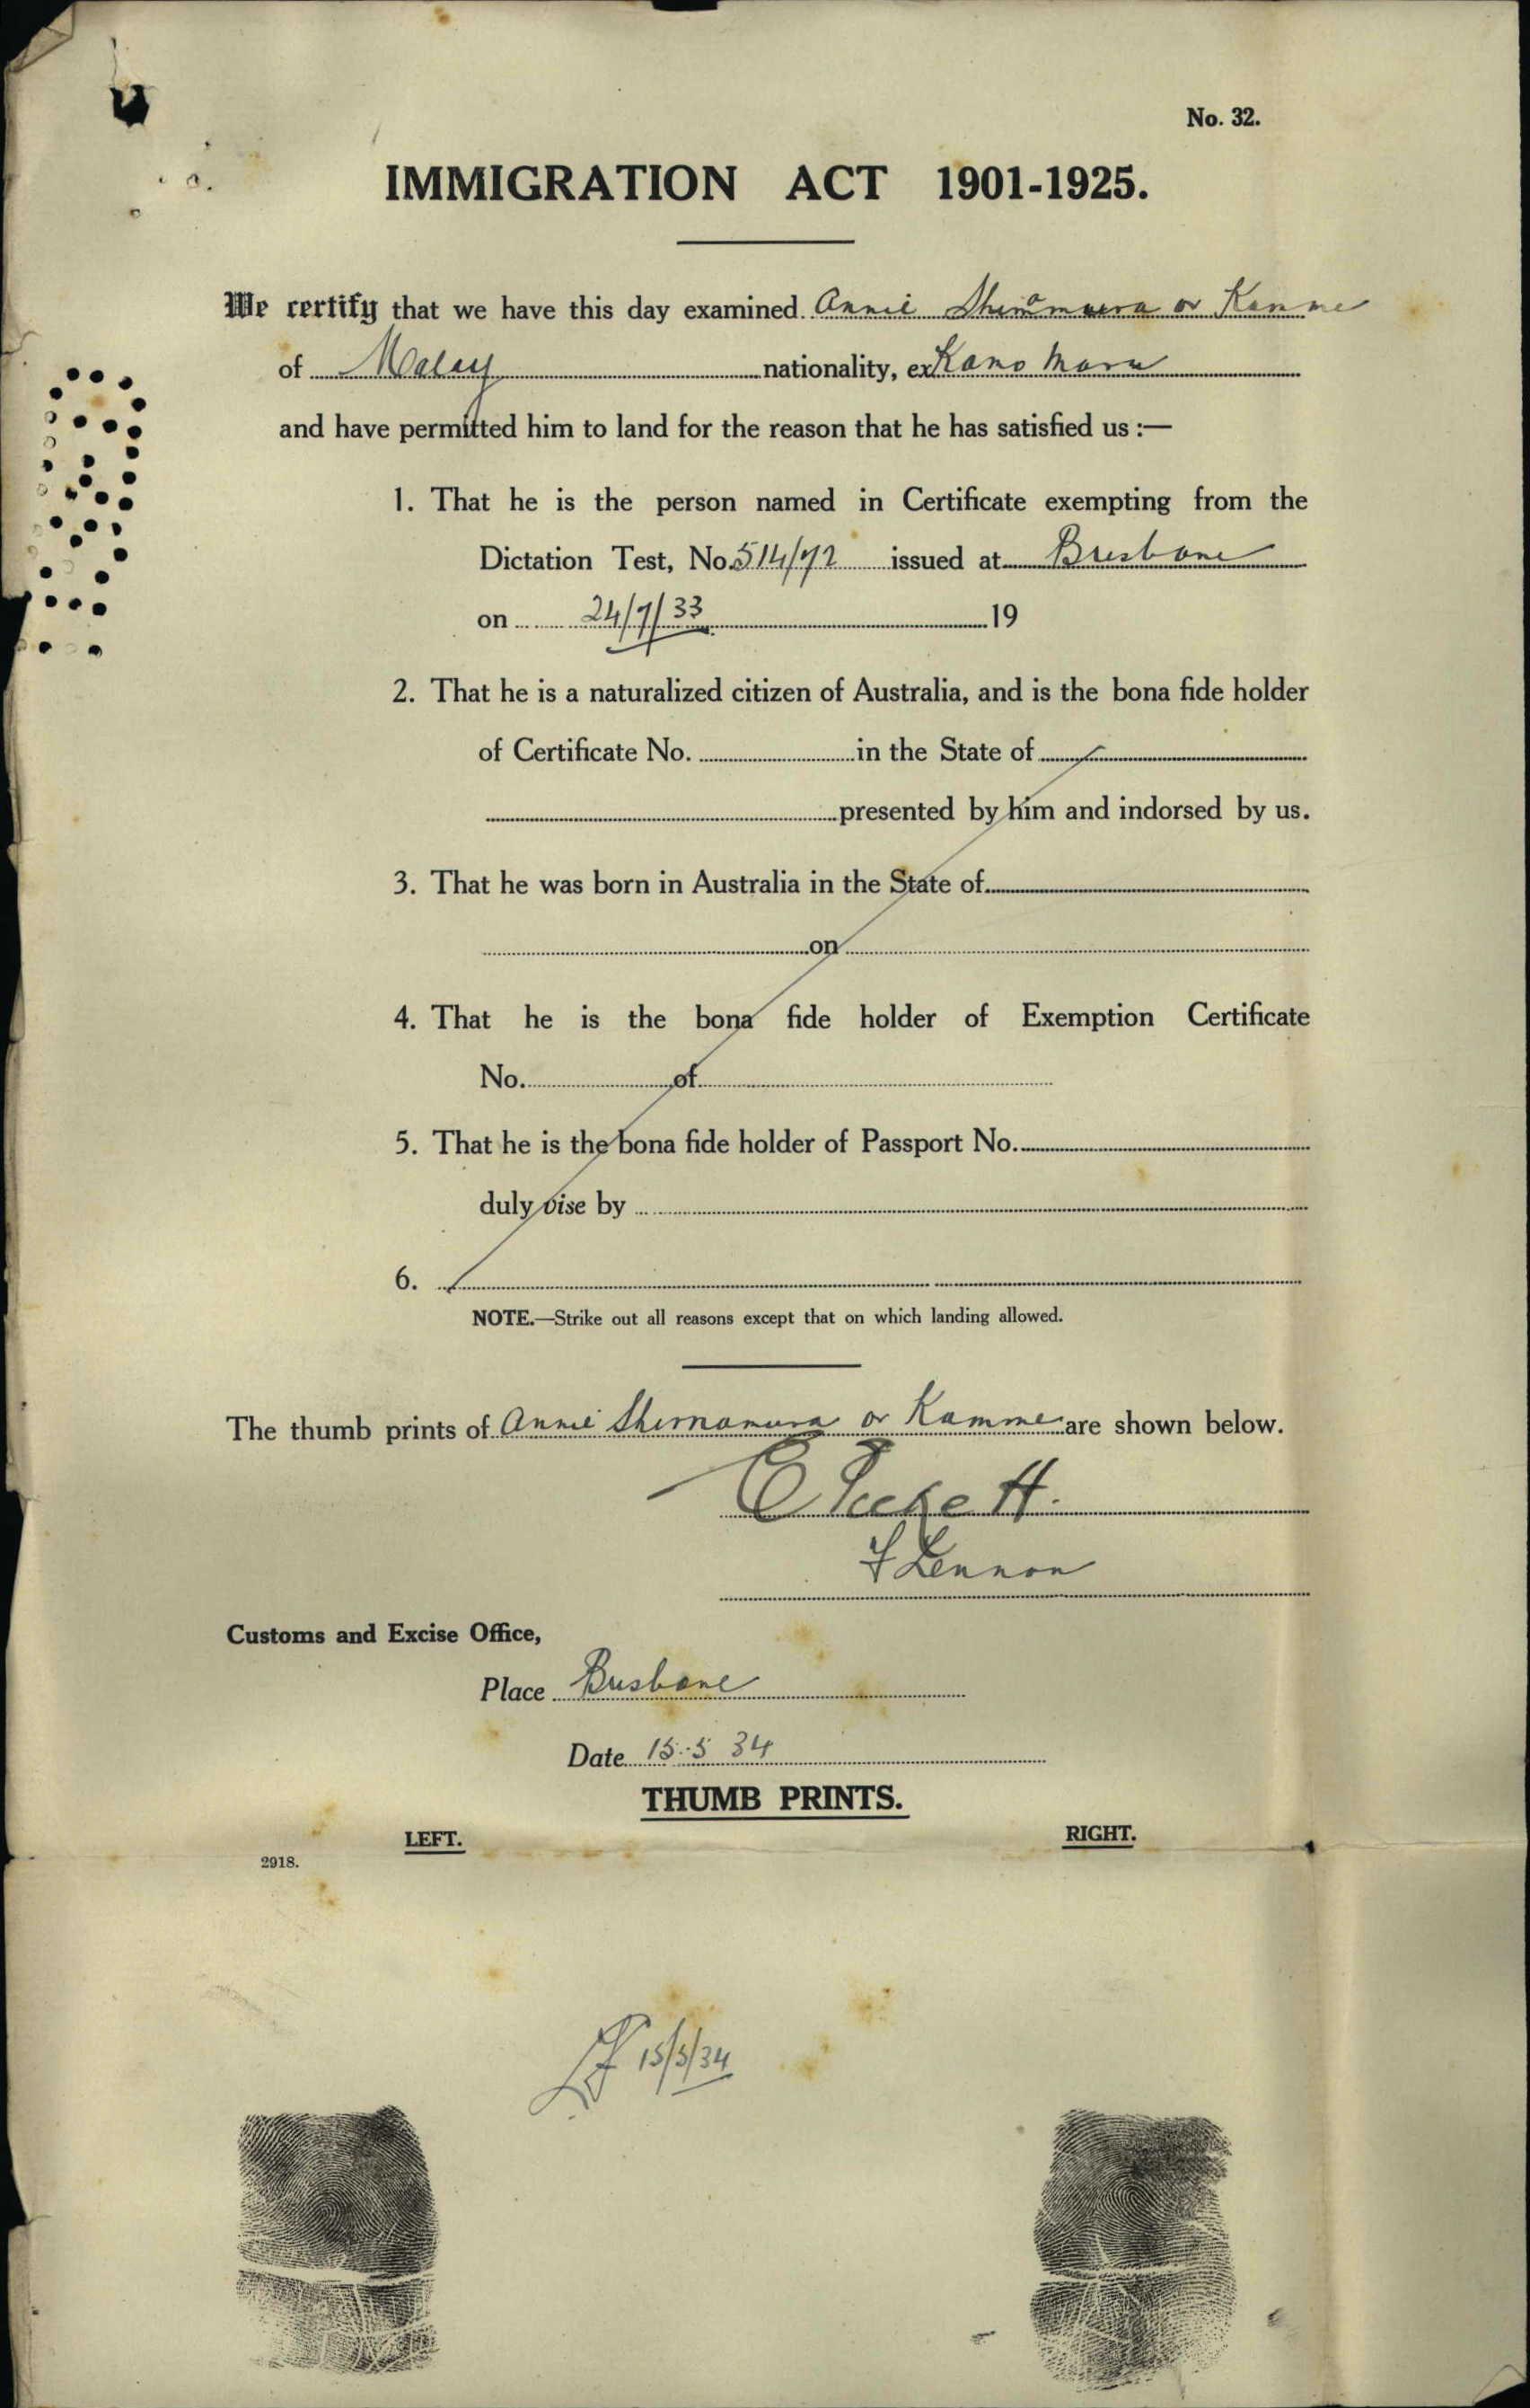 No. 32.
IMMIGRATION ACT 1901-1925.
We certify that we have this day examined Annie Shimamura or Kamme
of Malay nationality, ex Kamo Maru
and have permitted him to land for the reason that he has satisfied us :—
1. That he is the person named in Certificate exempting from the
Dictation Test, No. 514/72 issued at Brisbane
on 24/7/33 19
2. That he is a naturalized citizen of Australia, and is the bona fide holder
of Certificate No. in the State of
presented by him and indorsed by us.
3. That he was born in Australia in the State of
on
4. That he is the bona fide holder of Exemption Certificate
No. of
5. That he is the bona fide holder of Passport No.
duly vise by
6.
NOTE.—Strike out all reasons except that on which landing allowed.
The thumb prints of Annie Shimamura or Kamme are shown below.
E
F Lennon
Customs and Excise Office,
Place Brisbane
Date 15-5 34
THUMB PRINTS.
LEFT. RIGHT.
2918.
15/5/34